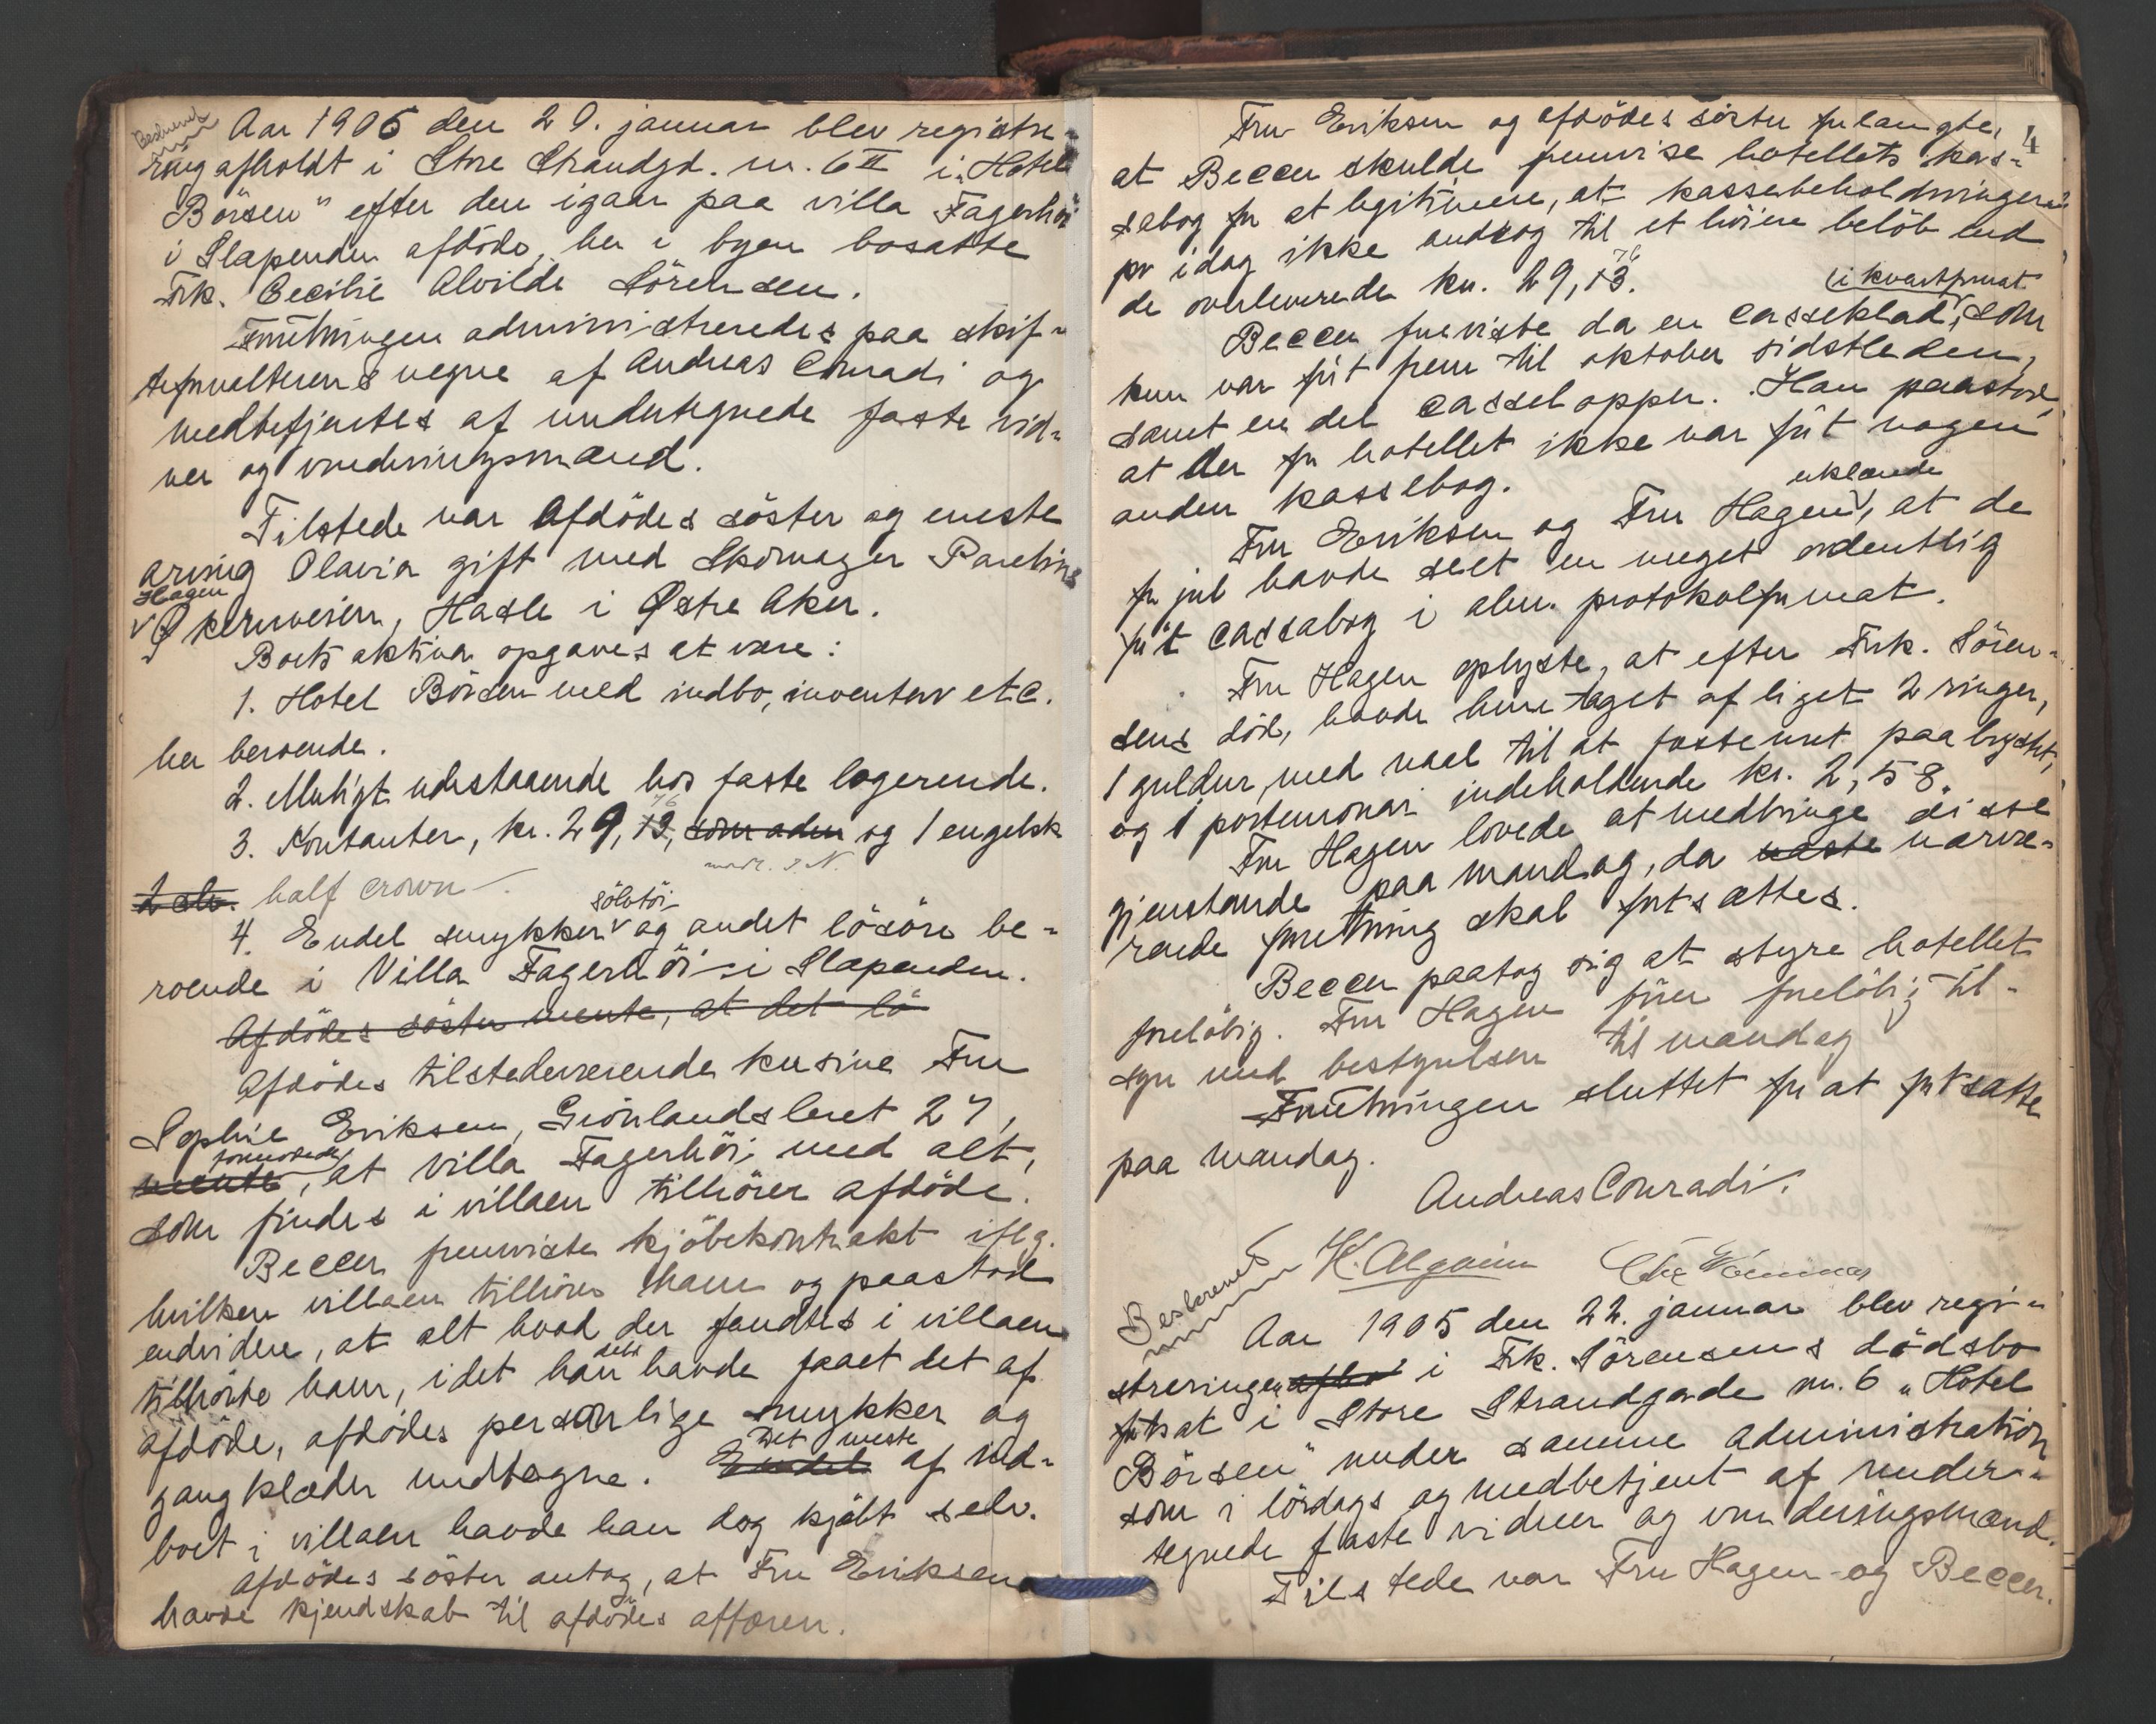 Aar 1905 den 20. januar blev registre-
ring afholdt i Store Strandgd. nr. 6 II i „Hotel
Börsen" efter den igaar paa villa Fagerhöi
i Slapenden afdöde, her i byen bosatte
Frk. Cecilie Alvilde Sörensen.
Forretningen administreredes paa skif-
teforvalterens vegne af Andreas Conradi og
medbetjentes af undertegnede faste vid-
ner og vurderingsmænd.
Tilstede var Afdödes söster og eneste
arving Olavia gift med Skomager
Hagen
Økernveien, Hasle i Østre Aker.
Boets aktiva opgaves at være:
1. Hotel Börsen med indbo, inventar etc.
her beroende.
2. Muligt udestaaende hos faste logerende.
76
3. Kontanter, kr. 29,13, som aden og 1 engelsk
2 sh. half crown
sölvtöi
4. Endel smykker og andet lösöre be-
roende i Villa Fagerhöi i Slapenden.
Afdödes söster mente, at det lö
Afdödes tilstedeværende kusine Fru
Sophie Eriksen, Grönlandsleret 27,
formodede
mente, at villa Fagerhöi med alt,
som findes i villaen tilhörer afdöde.
Beccer fremviste kjöbekontrakt iflg.
hvilken villaen tilhöres ham og paastod
endvidere, at alt hvad der fandtes i villaen
dels
tilhörte ham, idet han havde faaet det af
afdöde, afdödes personlige smykker og
Det meste
gangklæder undtagne. Endel af ind-
boet i villaen havde han dog kjöbt selv.
Afdödes söster antog, at Fru Eriksen
havde kjendskab til afdödes affæren.
4
Fru Eriksen og afdödes söster forlangte,
at Beccer skulde fremvise hotellets kas-
sabog for at legitimere, at kassebeholdningen
pr idag ikke androg til et höiere belöb end
76
de overleverede kr. 29,13.
(i kvartformat
Beccer foreviste da en casseklad, som
kun var fört frem til oktober sidstleden,
samt en del casselapper. Han paastod,
at der for hotellet ikke var fört nogen
anden kassebog.
erklærede
Fru Eriksen og Fru Hagen, at de
for jul havde seet en meget ordentlig
fört cassabog i alm. protokolformat.
Fru Hagen oplyste, at efter Frk. Sören-
sens död, havde hun taget af liget 2 ringer,
1 guldur, med naal til at faste uret paa brystet,
og 1 portemonai indeholdende kr. 2,58.
Fru Hagen lovede at medbringe disse
gjenstande paa mandag, da næste nærvæ-
rende forretning skal fortsættes.
Beccer paatog sig at styre hotellet
forelöbig. Fru Hagen förer forelöbig til-
syn med bestyrelsen til mandag
Forretningen sluttet for at fortsætte
paa mandag.
Andreas Conradi.
Beskrevet
Aar 1905 den 22. januar blev regi-
streringen afho i Frk. Sörensens dödsbo
fortsat i Store Strandgade nr. 6 „Hotel
Börsen" under samme administration
som i lördags og medbetjent af under-
tegnede faste vidner og vurderingsmænd.
Tilstede var Fru Hagen og Beccer.